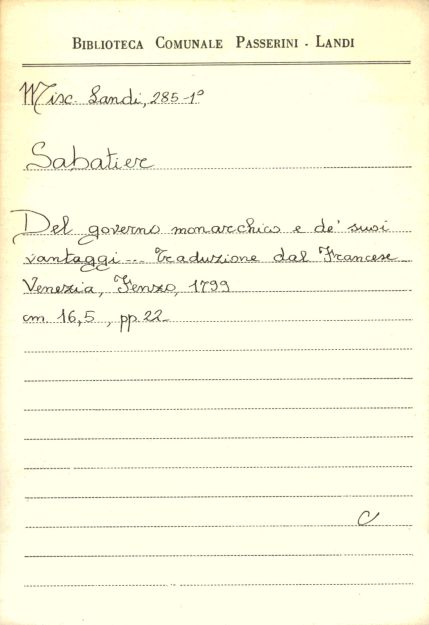 BIBLIOTECA COMUNALE PASSERINI - LANDI
Misc. Landi, 285-1°
Sabatier
Del governo monarchico e de' suoi
vantaggi... Traduzione dal Francese
Venezia, Fenzo, 1799
cm 16,5, pp. 22
C